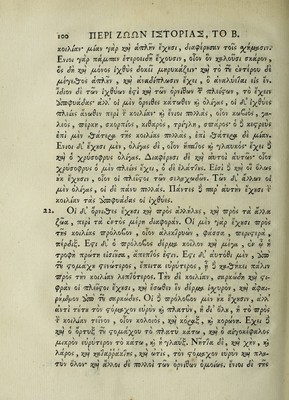 100 ΠΕΡΙ ΖΩΩΝ ΙΣΤΟΡΙΑΣ, ΤΟ Β.
κοιλίαν· μίαν γὰρ καὶ ἁπλῆν ἔχουσι, διαφέρουσαν τοῖς σχήμασιν.
Ἔνιοι γὰρ πάμπαν ἑτεροειδῆ ἔχουσιν, οἷον ὃν καλοῦσι σκάρον,
ὃς δὴ καὶ μόνος ἰχθὺς δοκεῖ μαρυκάζειν· καὶ τὸ τοῦ ἐντέρου δὲ
μέγεθος ἁπλῆν, καὶ ἀναδίπλωσιν ἔχει, ὃ ἀναλύεται εἰς ἕν.
ἴδιον δὲ τῶν ἰχθύων ἐστὶ καὶ τῶν ὀρνίθων τῶν πλείστων, τὸ ἔχειν
ἀποφυάδας· ἀλλ' οἱ μὲν ὄρνιθες κάτωθεν καὶ ὀλίγας, οἱ δ' ἰχθύες
πλείους ἄνωθεν περὶ τὴν κοιλίαν· καὶ ἔνιοι πολλὰς, οἷον κωβιὸς, γα-
λεὸς, πέρκη, σκορπίος, κίθαρος, τρίγλα, σπάρος· ὁ δὲ κεστρεὺς
ἐπὶ μὲν θάτερα τῆς κοιλίας πολλὰς, ἐπὶ δὲ θάτερα μίαν.
Ἔνιοι δ' ἔχουσι μὲν, ὀλίγας δὲ, οἷον ἥπατος καὶ γλαῦκος· ἔχει δὲ
καὶ ὁ χρύσοφρυς ὀλίγας. Διαφέρουσι δὲ καὶ αὐτοὶ αὑτῶν· οἷον
χρύσοφρυς ὁ μὲν πλείους ἔχει, ὁ δὲ ἐλάττους. Εἰσὶ δὲ καὶ οἳ ὅλως
οὐκ ἔχουσιν, οἷον οἱ πλεῖστοι τῶν σελαχωδῶν. Τῶν δ' ἄλλων οἱ
μὲν ὀλίγας, οἱ δὲ πάνυ πολλάς. Πάντες δὲ παρ' αὐτὴν ἔχουσι τὴν
κοιλίαν τὰς ἀποφυάδας οἱ ἰχθύες.
22. Οἱ δ' ὄρνιθες ἔχουσι καὶ πρὸς ἀλλήλους, καὶ πρὸς τὰ ἄλλα
ζῶα, περὶ τὰ ἐντὸς μέρη διαφοράν. Οἱ μὲν γὰρ ἔχουσι πρὸ
τῆς κοιλίας πρόλοβον, οἷον ἀλεκτρυὼν, φάσσα, περιστερὰ,
πέρδιξ. Ἔστι δ' ὁ πρόλοβος δέρμα κοῖλον καὶ μέγα, ἐν ᾧ ἡ
τροφὴ πρώτη εἰσιοῦσα, ἄπεπτός ἐστιν. Ἔστι δ' αὐτόθι μὲν, ἀπὸ
τοῦ στομάχου στενώτερος, ἔπειτα εὐρύτερος, ᾗ δὲ καθήκει πάλιν
πρὸς τὴν κοιλίαν λεπτότερος. Τὴν δὲ κοιλίαν, σαρκώδη καὶ στι-
φρὰν οἱ πλεῖστοι ἔχουσι, καὶ ἔσωθεν ἓν δέρμα ἰσχυρὸν, καὶ ἀφαι-
ρούμενον ἀπὸ τοῦ σαρκώδους. Οἱ δὲ πρόλοβον μὲν οὐκ ἔχουσιν, ἀλλ'
ἀντὶ τούτου τὸν στόμαχον εὐρὺν καὶ πλατὺν, ἢ δι' ὅλου, ἢ τὸ πρὸς
τὴν κοιλίαν τεῖνον, οἷον κολοιὸς, καὶ κόραξ, καὶ κορώνη. Ἔχει δὲ
καὶ ὁ ὄρτυξ τοῦ στομάχου τὸ πλατὺ κάτω, καὶ ὁ αἰγοκέφαλος
μικρὸν εὐρύτερον τὸ κάτω, καὶ ἡ γλαύξ. Νῆττα δὲ, καὶ χὴν, καὶ
λάρος, καὶ καταρράκτης, καὶ ὠτὶς, τὸν στόμαχον εὐρὺν καὶ πλα-
τὺν ὅλον· καὶ ἄλλοι δὲ πολλοὶ τῶν ὀρνίθων ὁμοίως. ἔνιοι δὲ τῆς